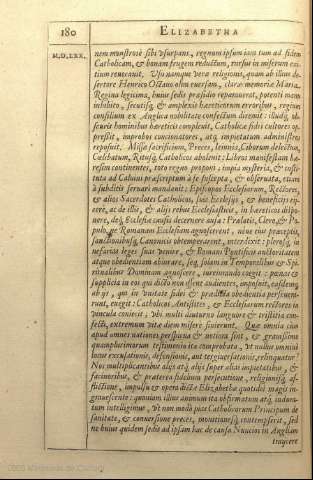 180 ELIZABETHA
M.D.LXX.
nem monstrosè sibi usurpans, regnum ipsum iam tum ad fidem
Catholicam, & bonam frugem reductum, rursus in miserum exi
tium revocavit. Usu namque veræ religionis, quam ab illius de-
sertore Henrico Octavo olim eversam, claræ memoriæ Maria,
Regina legitima, huius sedis præsidio reparaverat, potenti manu
inhibito, secutisq; & amplexis hæreticorum erroribus, regium
consilium ex Anglica nobilitate confectum diremit: illudq; ob-
scuris hominibus hæreticis complevit, Catholicæ fidei cultores op-
pressit, improbos concionatores, atq; impietatum administros
reposuit. Missæ sacrificium, Preces, Ieiunia, Ciborum delectum,
Cælibatum, Ritusq; Catholicos abolevit: Libros manifestam hæ-
resim continentes, toto regno proponi, impia mysteria, & insti-
tuta ad Calvini præscriptum à se suscepta, & observata, etiam
à subditis servari mandavit: Episcopos Ecclesiarum, Rectores,
& alios Sacerdotes Catholicos, suis Ecclesiis, & beneficiis eij-
cere, ac de illis, & aliis rebus Ecclesiasticis, in hæreticos dispo-
nere, deq; Ecclesiæ causis decernere ausa: Prælatis, Clero, & Po-
pulo, ne Romanam Ecclesiam agnoscerent, neve eius præceptis,
sanctionibusq; Canonicis obtemperarent, interdixit: plerosq; in
nefarias leges suas venire, & Romani Pontificis auctoritatem
atque obedientiam abiurare, seq; solam in Temporalibus & Spi-
ritualibus Dominam agnoscere, iureiurando coegit: pœnas &
supplicia in eos qui dicto non essent audientes, imposuit, easdemq;
ab iis, qui in unitate fidei & prædicta obedientia persevera-
runt, exegit: Catholicos Antistites, & Ecclesiarum rectores in
vincula coniecit: ubi multi diuturno languore & tristitia con-
fecti, extremum vitæ diem misere finierunt. Quæ omnia cum
apud omnes nationes perspicua & notoria sint, & gravissimo
quamplurimorum testimonio ita comprobata, ut nullus omnino
locus excusationis, defensionis, aut tergiversationis relinquatur:
Nos multiplicantibus aliis atq; aliis super alias impietatibus, &
facinoribus, & præterea fidelium persecutione, religionisq; af-
flictione, impulsu & opera dictæ Elizabethæ quotidie magis in-
gravescente: quoniam illius animum ita obfirmatum atq; indura-
tum intelligimus, ut non modo pias Catholicorum Principum de
sanitate, & conversione preces, monitionesq; contempserit, sed
ne huius quidem sedis ad ipsam hac de causa Nuncios in Angliam
traijcere